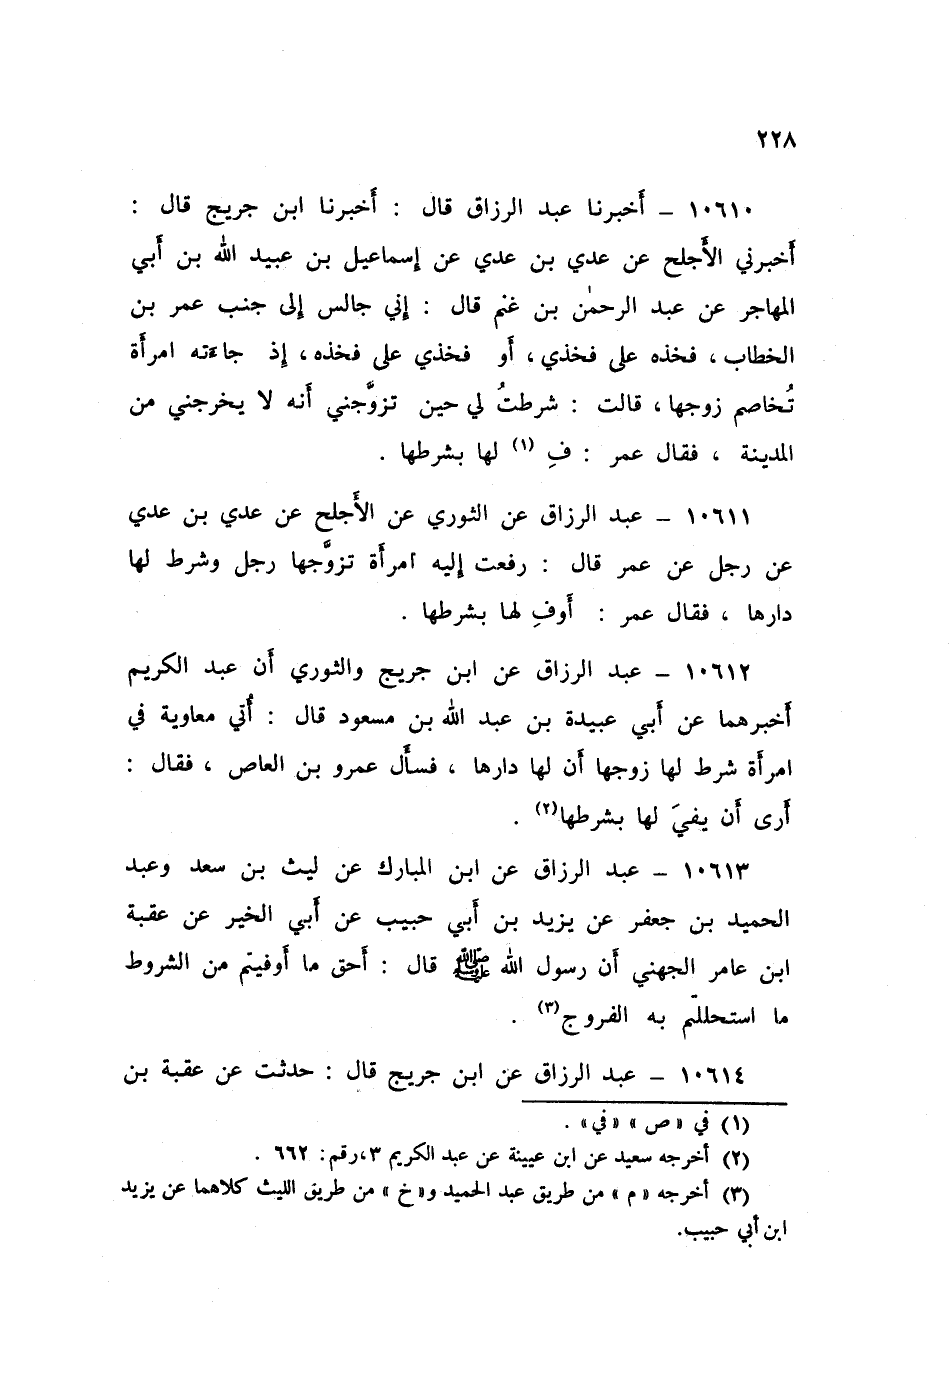 ٢٢٨
١٠٦١٠ – أخبرنا عبد الرزاق قال : أخبرنا ابن جريج قال :
أخبرني الأجلح عن عدي بن عدي عن إسماعيل بن عبيد الله بن أبي
المهاجر عن عبد الرحمٰن بن غنم قال : إني جالس إلى جنب عمر بن
الخطاب ، فخذه على فخذي ، أو فخذي على فخذه ، إذ جاءته امرأة
تُخاصم زوجها ، قالت : شرطتُ لي حين تزوَّجني أنه لا يخرجني من
المدينة ، فقال عمر : فِ (١) لها بشرطها .
١٠٦١١ – عبد الرزاق عن الثوري عن الأجلح عن عدي بن عدي
عن رجل عن عمر قال : رفعت إليه امرأة تزوَّجها رجل وشرط لها
دارها ، فقال عمر : أوفِ لها بشرطها .
١٠٦١٢ – عبد الرزاق عن ابن جريج والثوري أن عبد الكريم
أخبرهما عن أبي عبيدة بن عبد الله بن مسعود قال : أُتي معاوية في
امرأة شرط لها زوجها أن لها دارها ، فسأل عمرو بن العاص ، فقال :
أرى أن يفيَ لها بشرطها(٢) .
١٠٦١٣ – عبد الرزاق عن ابن المبارك عن ليث بن سعد وعبد
الحميد بن جعفر عن يزيد بن أبي حبيب عن أبي الخير عن عقبة
ابن عامر الجهني أن رسول الله ﷺ قال : أحق ما أوفيتم من الشروط
ما استحللتم به الفروج(٣) .
١٠٦١٤ – عبد الرزاق عن ابن جريج قال : حدثت عن عقبة بن
(١) في « ص » « في » .
(٢) أخرجه سعيد عن ابن عيينة عن عبد الكريم ٣، رقم : ٦٦٢ .
(٣) أخرجه « م » من طريق عبد الحميد و« خ » من طريق الليث كلاهما عن يزيد
ابن أبي حبيب.